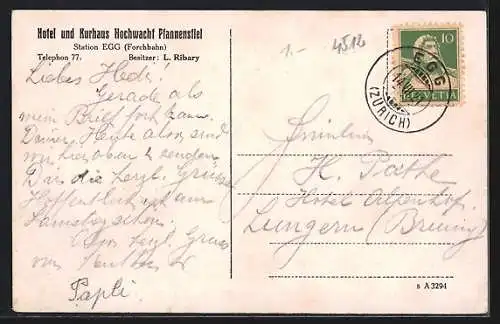 Hotel und Kurhaus Hochwacht Pfannenstiel
Station EGG (Forchbahn)
Telephon 77. Besitzer: L. Ribary
1.-
4512
10
HELVETIA
EGG
(ZÜRICH)
Liebes Hedi!
Gerade als
mein Brief fort kam.
Heute also sind
wir hier oben & senden
Dir die herzl. Grüsse
Hoffentlich
Samstag schon.
Also herzl. Gruss
von
Papli
Fräulein
H. Pathe
Hotel Alpenhof
Lungern (Brünig)
s A 3294